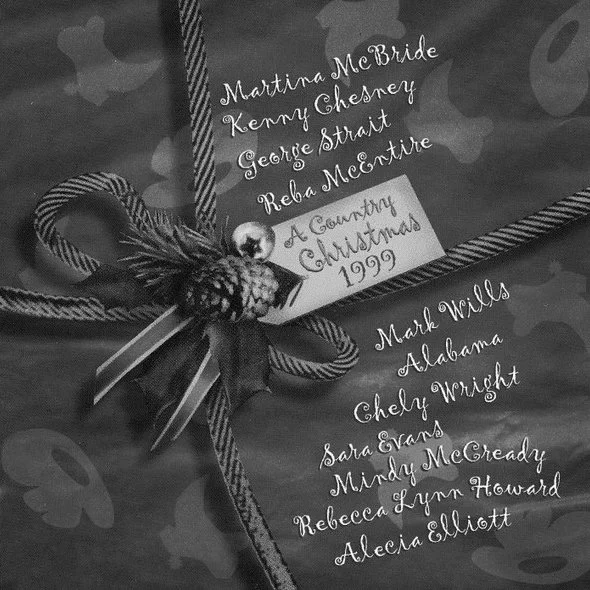 Martina McBride
Kenny Chesney
George Strait
Reba McEntire
A Country
Christmas
1999
Mark Wills
Alabama
Chely Wright
Sara Evans
Mindy McCready
Rebecca Lynn Howard
Alecia Elliott